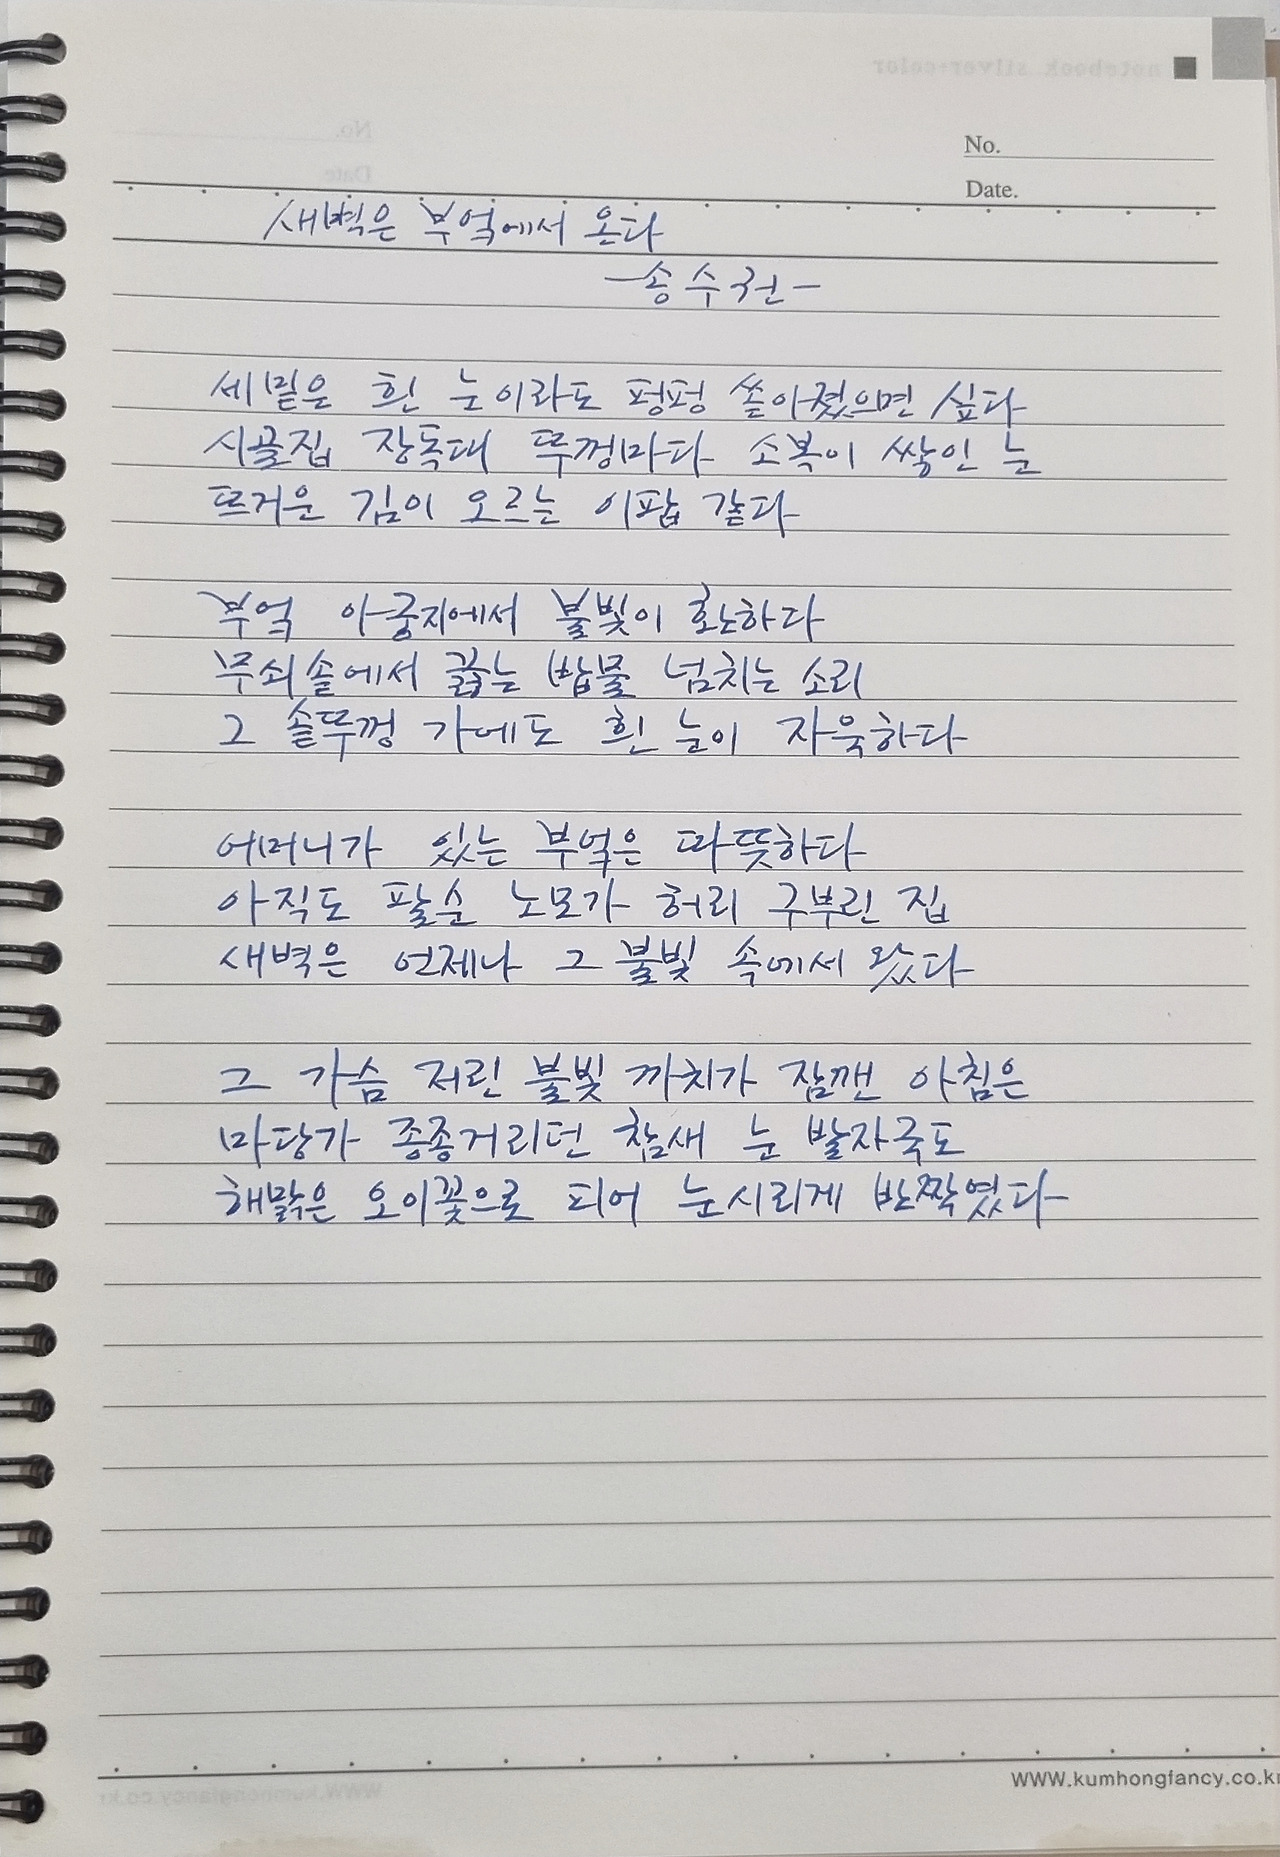 notebook silver+color
No.
Date.
새벽은 부엌에서 온다
-송수권-
세밑은 흰 눈이라도 펑펑 쏟아졌으면 싶다
시골집 장독대 뚜껑마다 소복이 쌓인 눈
뜨거운 김이 오르는 이팝 같다
부엌 아궁지에서 불빛이 환하다
무쇠솥에서 끓는 밥물 넘치는 소리
그 솥뚜껑 가에도 흰 눈이 자욱하다
어머니가 있는 부엌은 따뜻하다
아직도 팔순 노모가 허리 구부린 집
새벽은 언제나 그 불빛 속에서 왔다
그 가슴 저린 불빛 까치가 잠깬 아침은
마당가 종종거리던 참새 눈 발자국도
해맑은 오이꽃으로 피어 눈시리게 반짝였다
WWW.kumhongfancy.co.kr